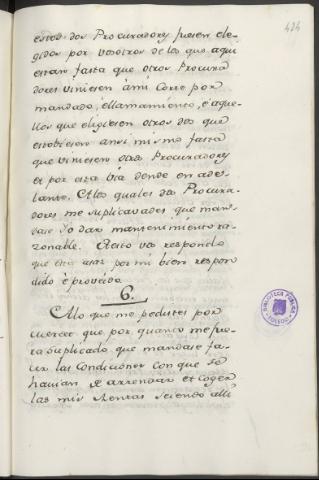 424
estos dos Procuradores fuesen ele-
gidos por vosotros de los que aqui
estan fasta que otros Procura
dores viniesen à mi Corte por
mandado, è llamamiento, è aque-
llos que eligiesen otros dos que
estobiesen ansi mismo fasta
que viniesen otros Procuradores
et por esta via dende en ade-
lante. A los quales dos Procura-
dores me suplicavades que man-
dase Yo dar mantenimiento ra-
zonable. A esto vos respondo
que esto está por mi bien respon
dido è proveido.
6.
A lo que me pedistes por
merced que por quanto me fue
ra suplicado que mandase fa-
cer las Condiciones con que se
havian de arrendar et coger
las mis Rentas seiendo alli
BIBLIOTECA PUBLICA
TOLEDO